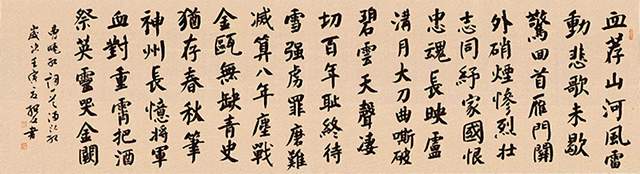 血荐山河風雷
動悲歌未歇
驚回首雁門關
外硝煙慘烈壯
志同紓家國恨
忠魂長映盧
溝月大刀曲嘶破
碧雲天聲凄
切百年恥終待
雪强虜罪磨難
滅算八年塵戰
金甌無缺青史
猶存春秋筆
神州長憶將軍
血對重霄把酒
祭英靈哭金闕
詞滿江紅
歲次壬寅夏書